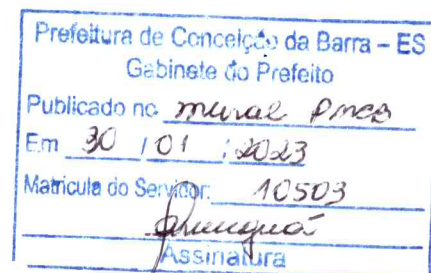 Prefeitura de Conceição da Barra – ES
Gabinete do Prefeito
Publicado no mural PMCB
Em 30 / 01 / 2023
Matricula do Servidor: 10503
Assinatura